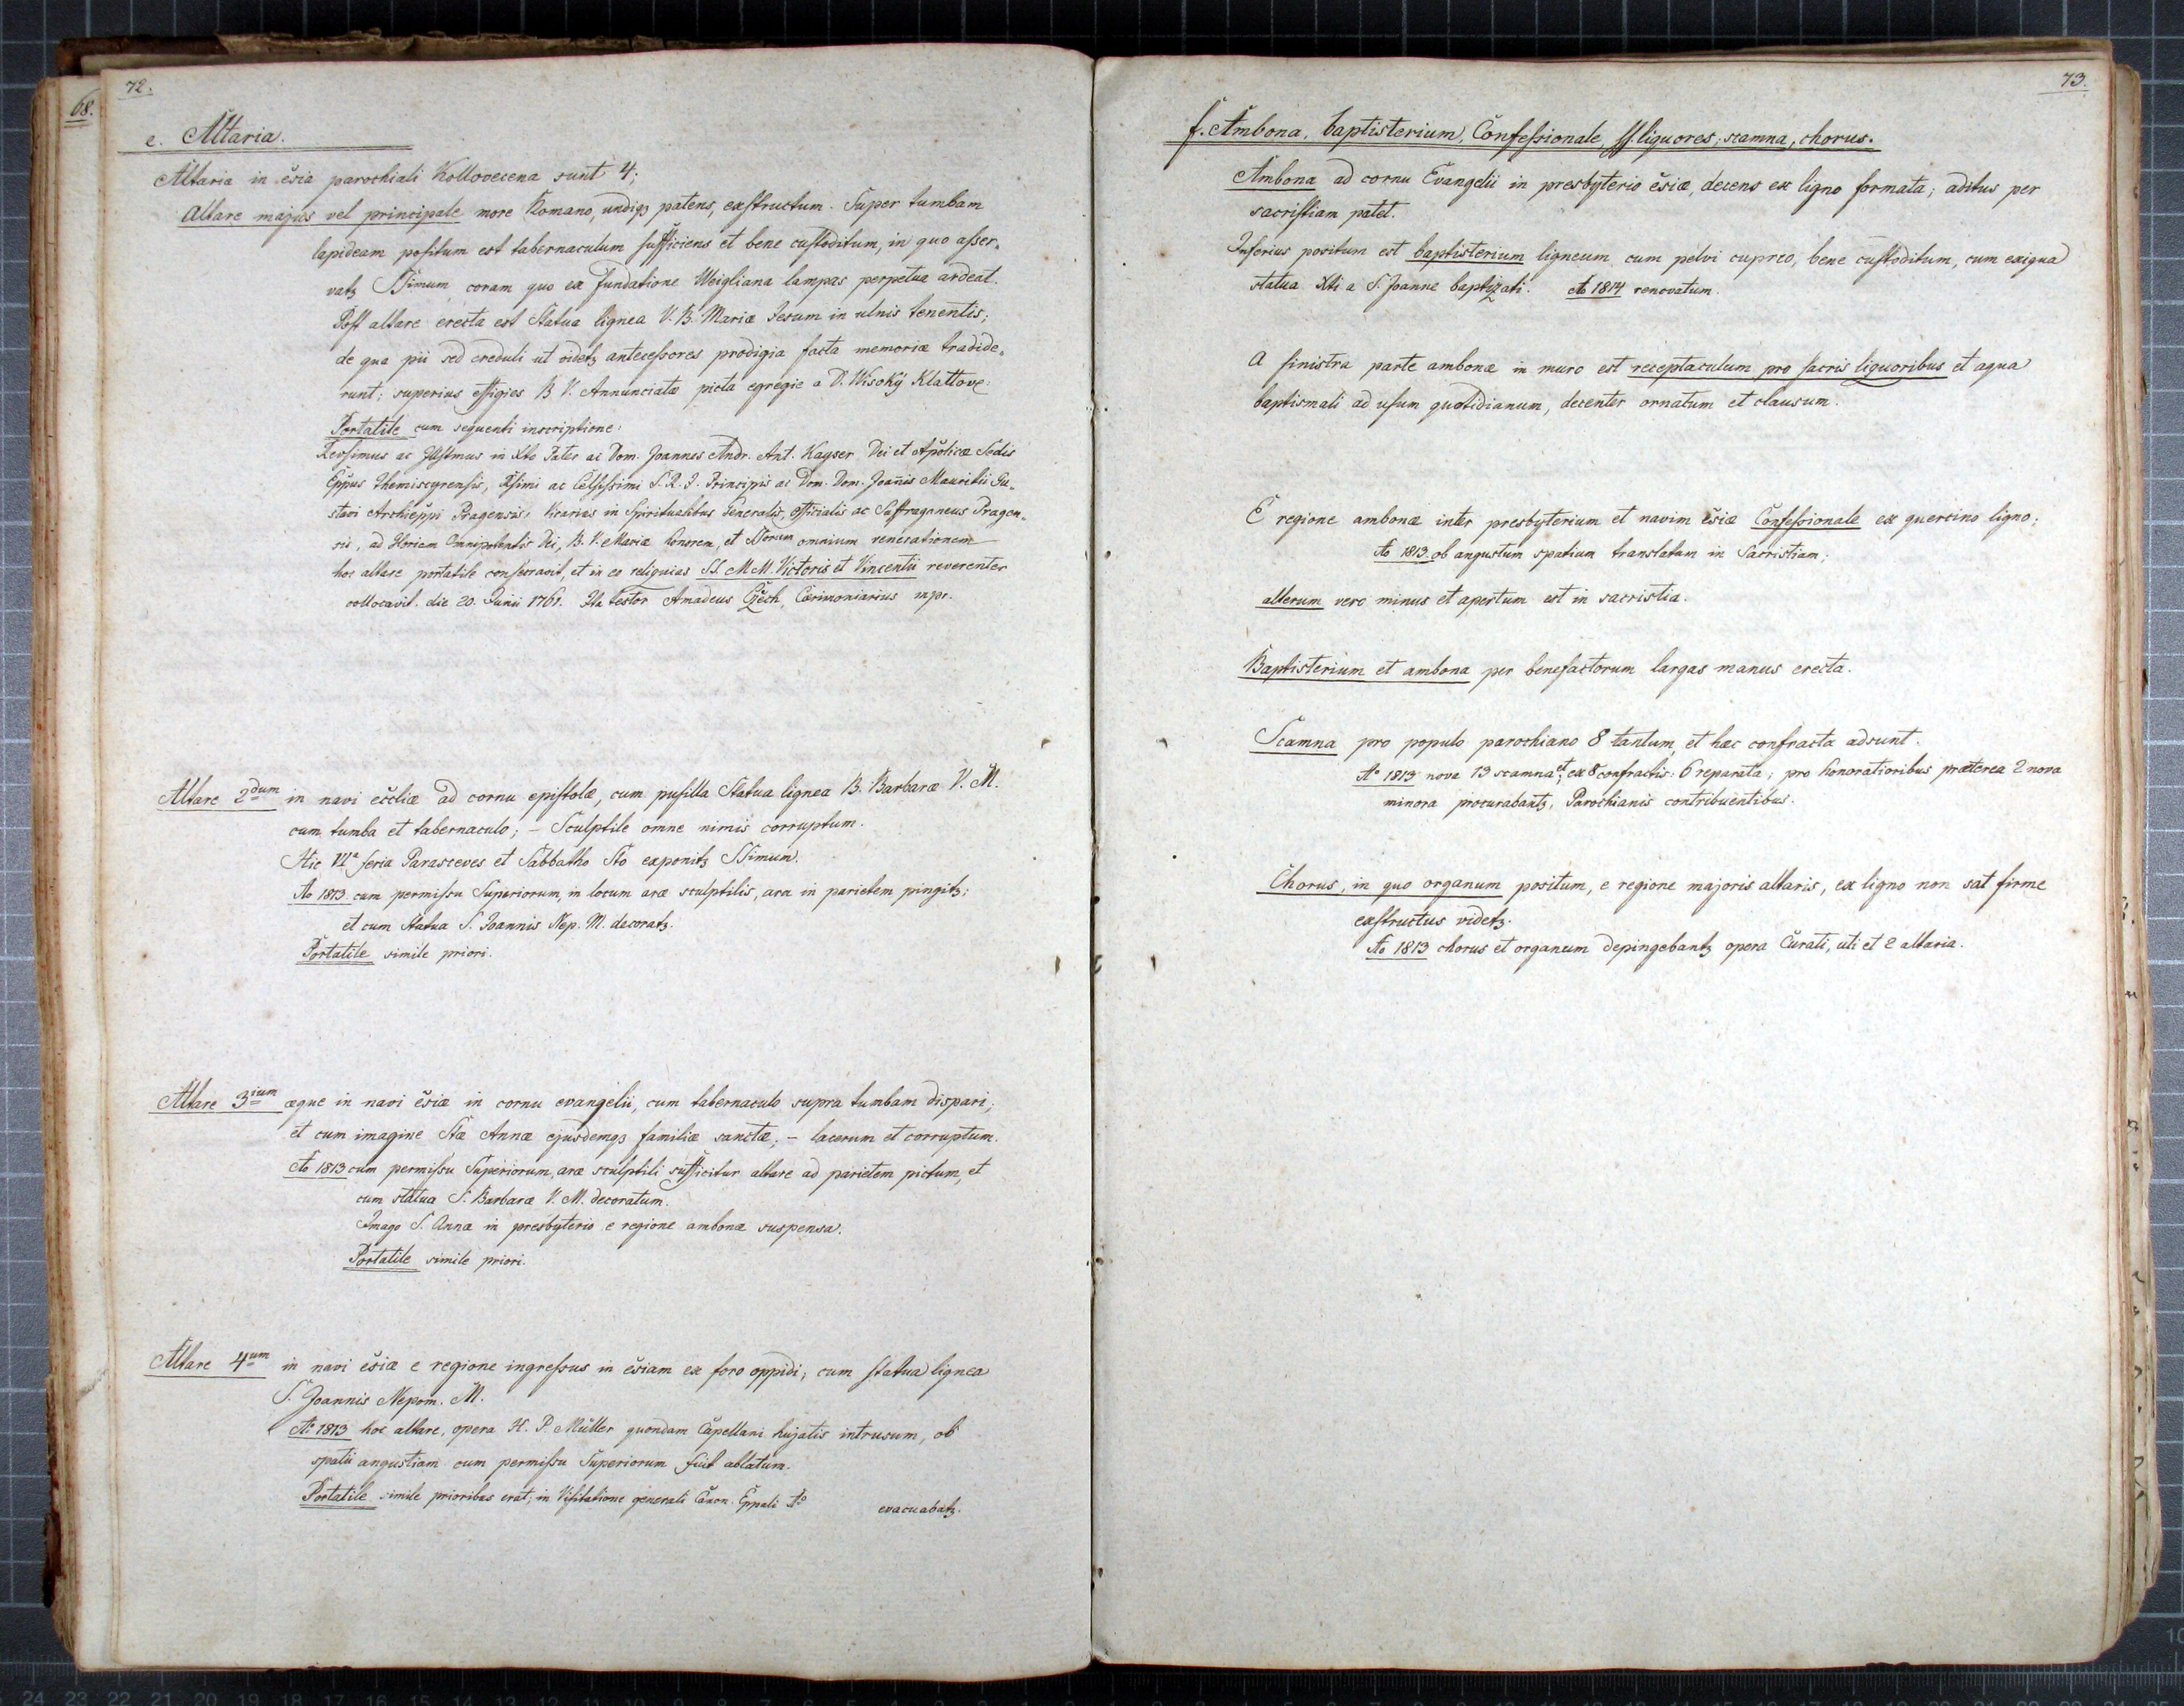 68.
72.
e. Altaria.
Altaria in ẽsia parochiali Kollovecena sunt 4;
Altare majus vel principale more Romano, undiqꝫ patens, exstructum. Super tumbam
lapideam positum est tabernaculum sufficiens et bene custoditum, in quo asser„
vatꝫ SSimum coram quo ex fundatione Weigliana lampas perpetua ardeat.
Post altare erecta est Statua lignea V. B. Mariæ Jesum in ulnis tenentis;
de qua pii sed creduli ut videtꝫ antecessores prodigia facta memoriæ tradide„
runt; superius effigies B V. Annunciatæ picta egregie a D. Wisoký Klattove.
Portatile cum sequenti inscriptione:
Revsimus ac Illstmus in Xto Pater ac Dom. Joannes Andr. Ant. Kayser Dei et Apõlicæ Sedis
Eppus Themiscyrensis, Rssimi ac Celsissimi S. R. I. Principis ac Dom. Dom. Joañis Mauritii Gu„
stavi Archieppi Pragensis, Vicarius in Spiritualibus Generalis, Officialis ac Suffraganeus Pragen„
sis, ad Gloriam Omnipotentis Dei, B. V. Mariæ honorem, et SStorum omnium venerationem
hoc altare portatile consecravit, et in eo reliquias SS. M M. Victoris et Vincentii reverenter
collocavit. die 20. Junii 1761. Ita testor Amadeus Czech, Cærimoniarius mpr.
Altare 2dum in navi eccliæ ad cornu epistolæ, cum pusilla Statua lignea B. Barbaræ V. M.
cum tumba et tabernaculo; – Sculptile omne nimis corruptum.
Hic VIa feria Parasceves et Sabbatho Sto exponitꝫ SSimum.
Ao 1813 cum permissu Superiorum, in locum aræ sculptilis, ara in parietem pingitꝫ;
et cum Statua S. Joannis Nep. M. decoratꝫ.
Portatile simile priori.
Altare 3tium æque in navi ẽsiæ in cornu evangelii, cum tabernaculo supra tumbam dispari;
et cum imagine Stæ Annæ ejusdemqꝫ familiæ sanctæ; – lacerum et corruptum.
Ao 1813 cum permissu Superiorum, aræ sculptili sufficitur altare ad parietem pictum, et
cum statua S. Barbaræ V. M. decoratum.
Imago S. Annæ in presbyterio e regione ambonæ suspensa.
Portatile simile priori.
Altare 4tum in navi ẽsiæ e regione ingressus in ẽsiam ex foro oppidi, cum statua lignea
S. Joannis Nepom. M.
Ao 1813 hoc altare, opera H. P. Müller quondam Capellani hujatis intrusum, ob
spatii angustiam cum permissu Superiorum fuit ablatum.
Portatile simile prioribus erat; in Visitatione generali Canon. Eppali Ao evacuabatꝫ.
73.
f. Ambona, baptisterium, Confessionale, SS. liquores, scamna, chorus.
Ambona ad cornu Evangelii in presbyterio ẽsiæ, decens ex ligno formata; aditus per
sacristiam patet.
Inferius positum est baptisterium ligneum cum pelvi cupreo, bene custoditum, cum exigua
statua Xti a S. Joanne baptizati. Ao 1814 renovatum.
A sinistra parte ambonæ in muro est receptaculum pro sacris liquoribus et aqua
baptismali ad usum quotidianum, decenter ornatum et clausum.
E regione ambonæ inter presbyterium et navim ẽsiæ Confessionale ex quercino ligno;
Ao 1813 ob angustum spatium translatum in Sacristiam;
alterum vero minus et apertum est in sacristia.
Baptisterium et ambona per benefactorum largas manus erecta.
Scamna pro populo parochiano 8 tantum, et hæc confracta adsunt.
Ao 1813 nova 13 scamna, et ex 8 confractis: 6 reparata; pro honoratioribus præterea 2 nova
minora procurabantꝫ, Parochianis contribuentibus.
Chorus, in quo organum positum, e regione majoris altaris, ex ligno non sat firme
exstructus videtꝫ.
Ao 1813 chorus et organum depingebantꝫ opera Curati, uti et 2 altaria.